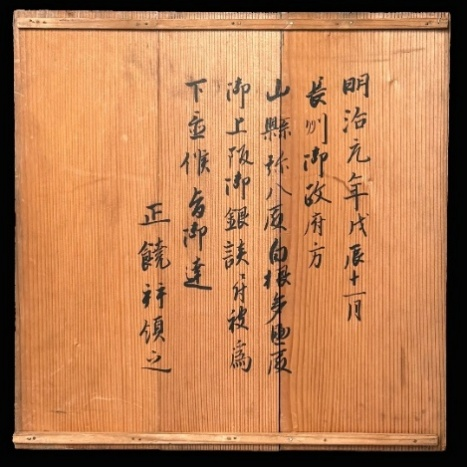 明治元年戊辰十一月
長州御政府方
山縣弥八殿白根多助殿
御上阪御銀談ニ付被為
下置候旨御達
正饒拝領之